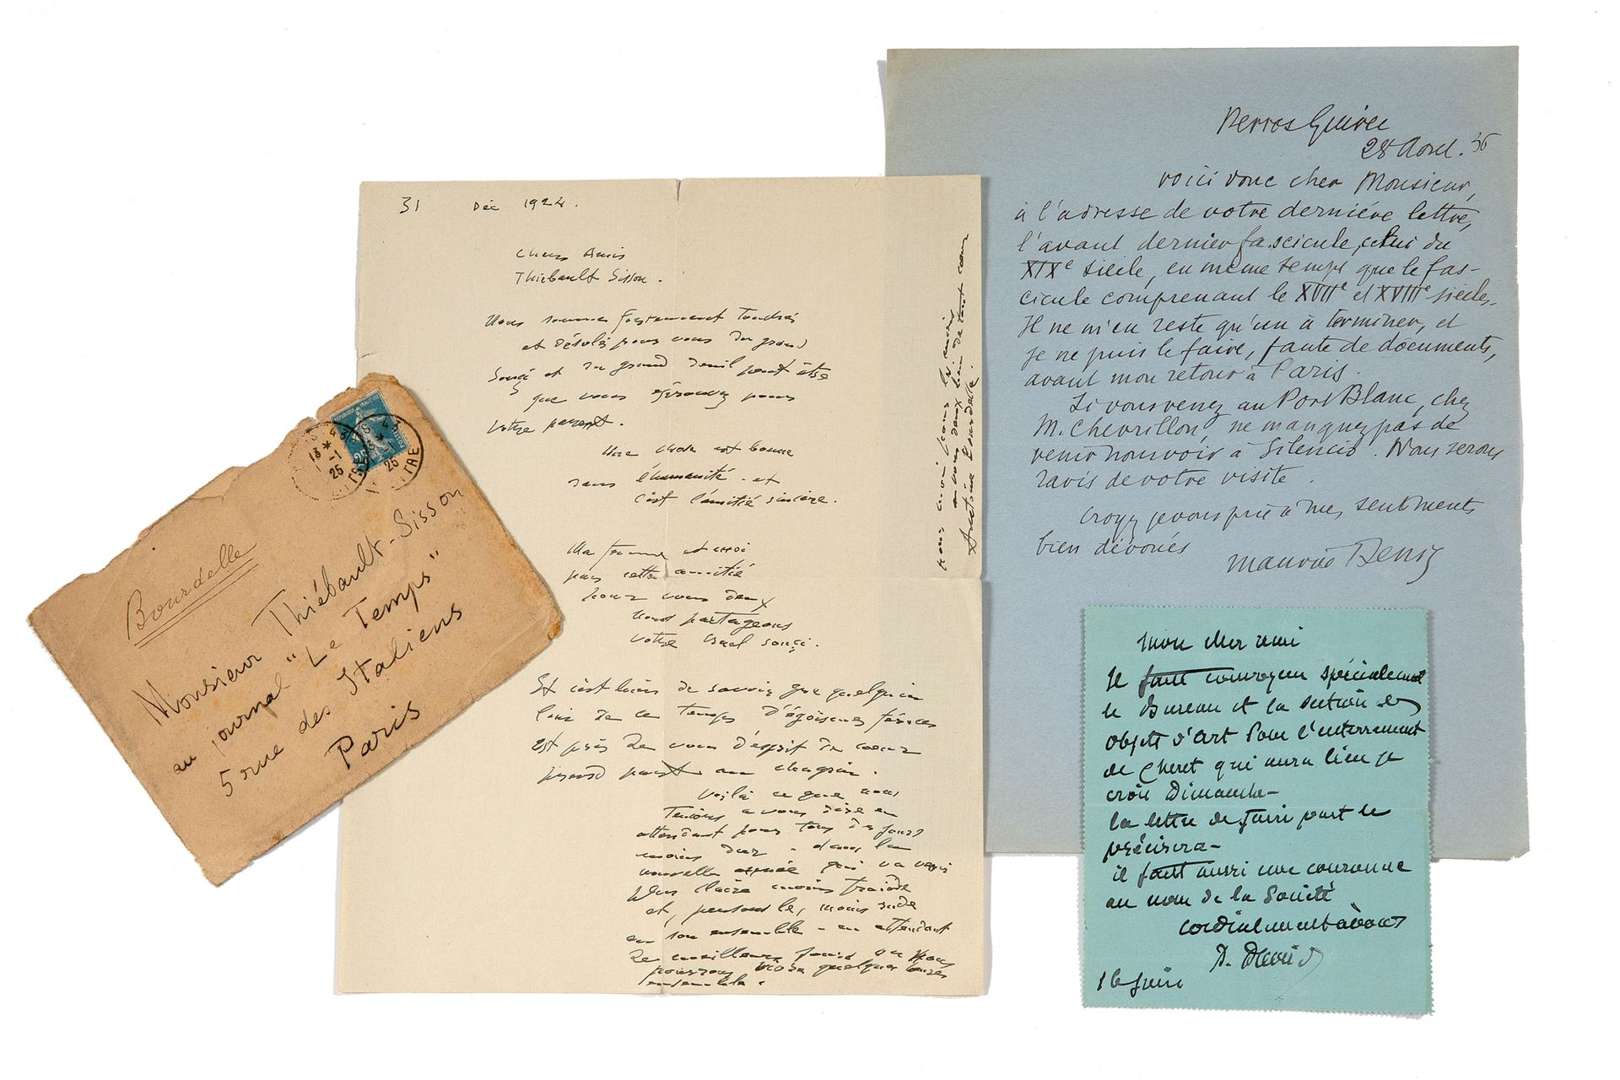 Bourdelle
Monsieur Thiébault-Sisson
au journal "Le Temps"
5 rue des Italiens
Paris
31 Déc 1924.
Chers Amis
Thiébault Sisson.
Nous sommes
et désolés pour vous du grand
et du grand deuil peut être
que vous éprouvez pour
votre parent.
Une chose est bonne
dans l'humanité - et
c'est l'amitié sincère.
Ma femme et moi
par cette amitié
pour vous deux
nous partageons
votre
Et c'est bien de savoir que quelqu'un
loin de ce temps d'égoïsmes féroces
est près de vous d'esprit du cœur
prend part au chagrin.
Voilà ce que nous
tenions à vous dire en
attendant pour tous des jours
moins durs - dans la
nouvelle année qui va
plus claire moins
et, moins rude
en son ensemble - en attendant
de meilleurs jours où nous
pourrons vivre quelques heures
ensemble.
à vous deux bien de tout cœur
Antoine Bourdelle.
Perros Guirec
28 Avril. 36
voici donc cher Monsieur,
à l'adresse de votre dernière lettre,
l'avant dernier fascicule, celui du
XIXe siècle, en même temps que le fas-
cicule comprenant le XVIIe et XVIIIe siècles.
Il ne m'en reste qu'un à terminer, et
je ne puis le faire, faute de documents,
avant mon retour à Paris.
Si vous venez au Port Blanc, chez
M. Chevrillon, ne manquez pas de
venir nous voir à Silencio. Nous serons
ravis de votre visite.
Croyez je vous prie à mes sentiments
bien dévoués
Maurice Denis
mon cher ami
Il faut convoquer spécialement
le Bureau et la section des
objets d'art pour l'enterrement
de Cheret qui aura lieu je
crois Dimanche-
la lettre de faire part le
précisera-
il faut aussi une couronne
au nom de la Société
cordialement à vous
16 juin